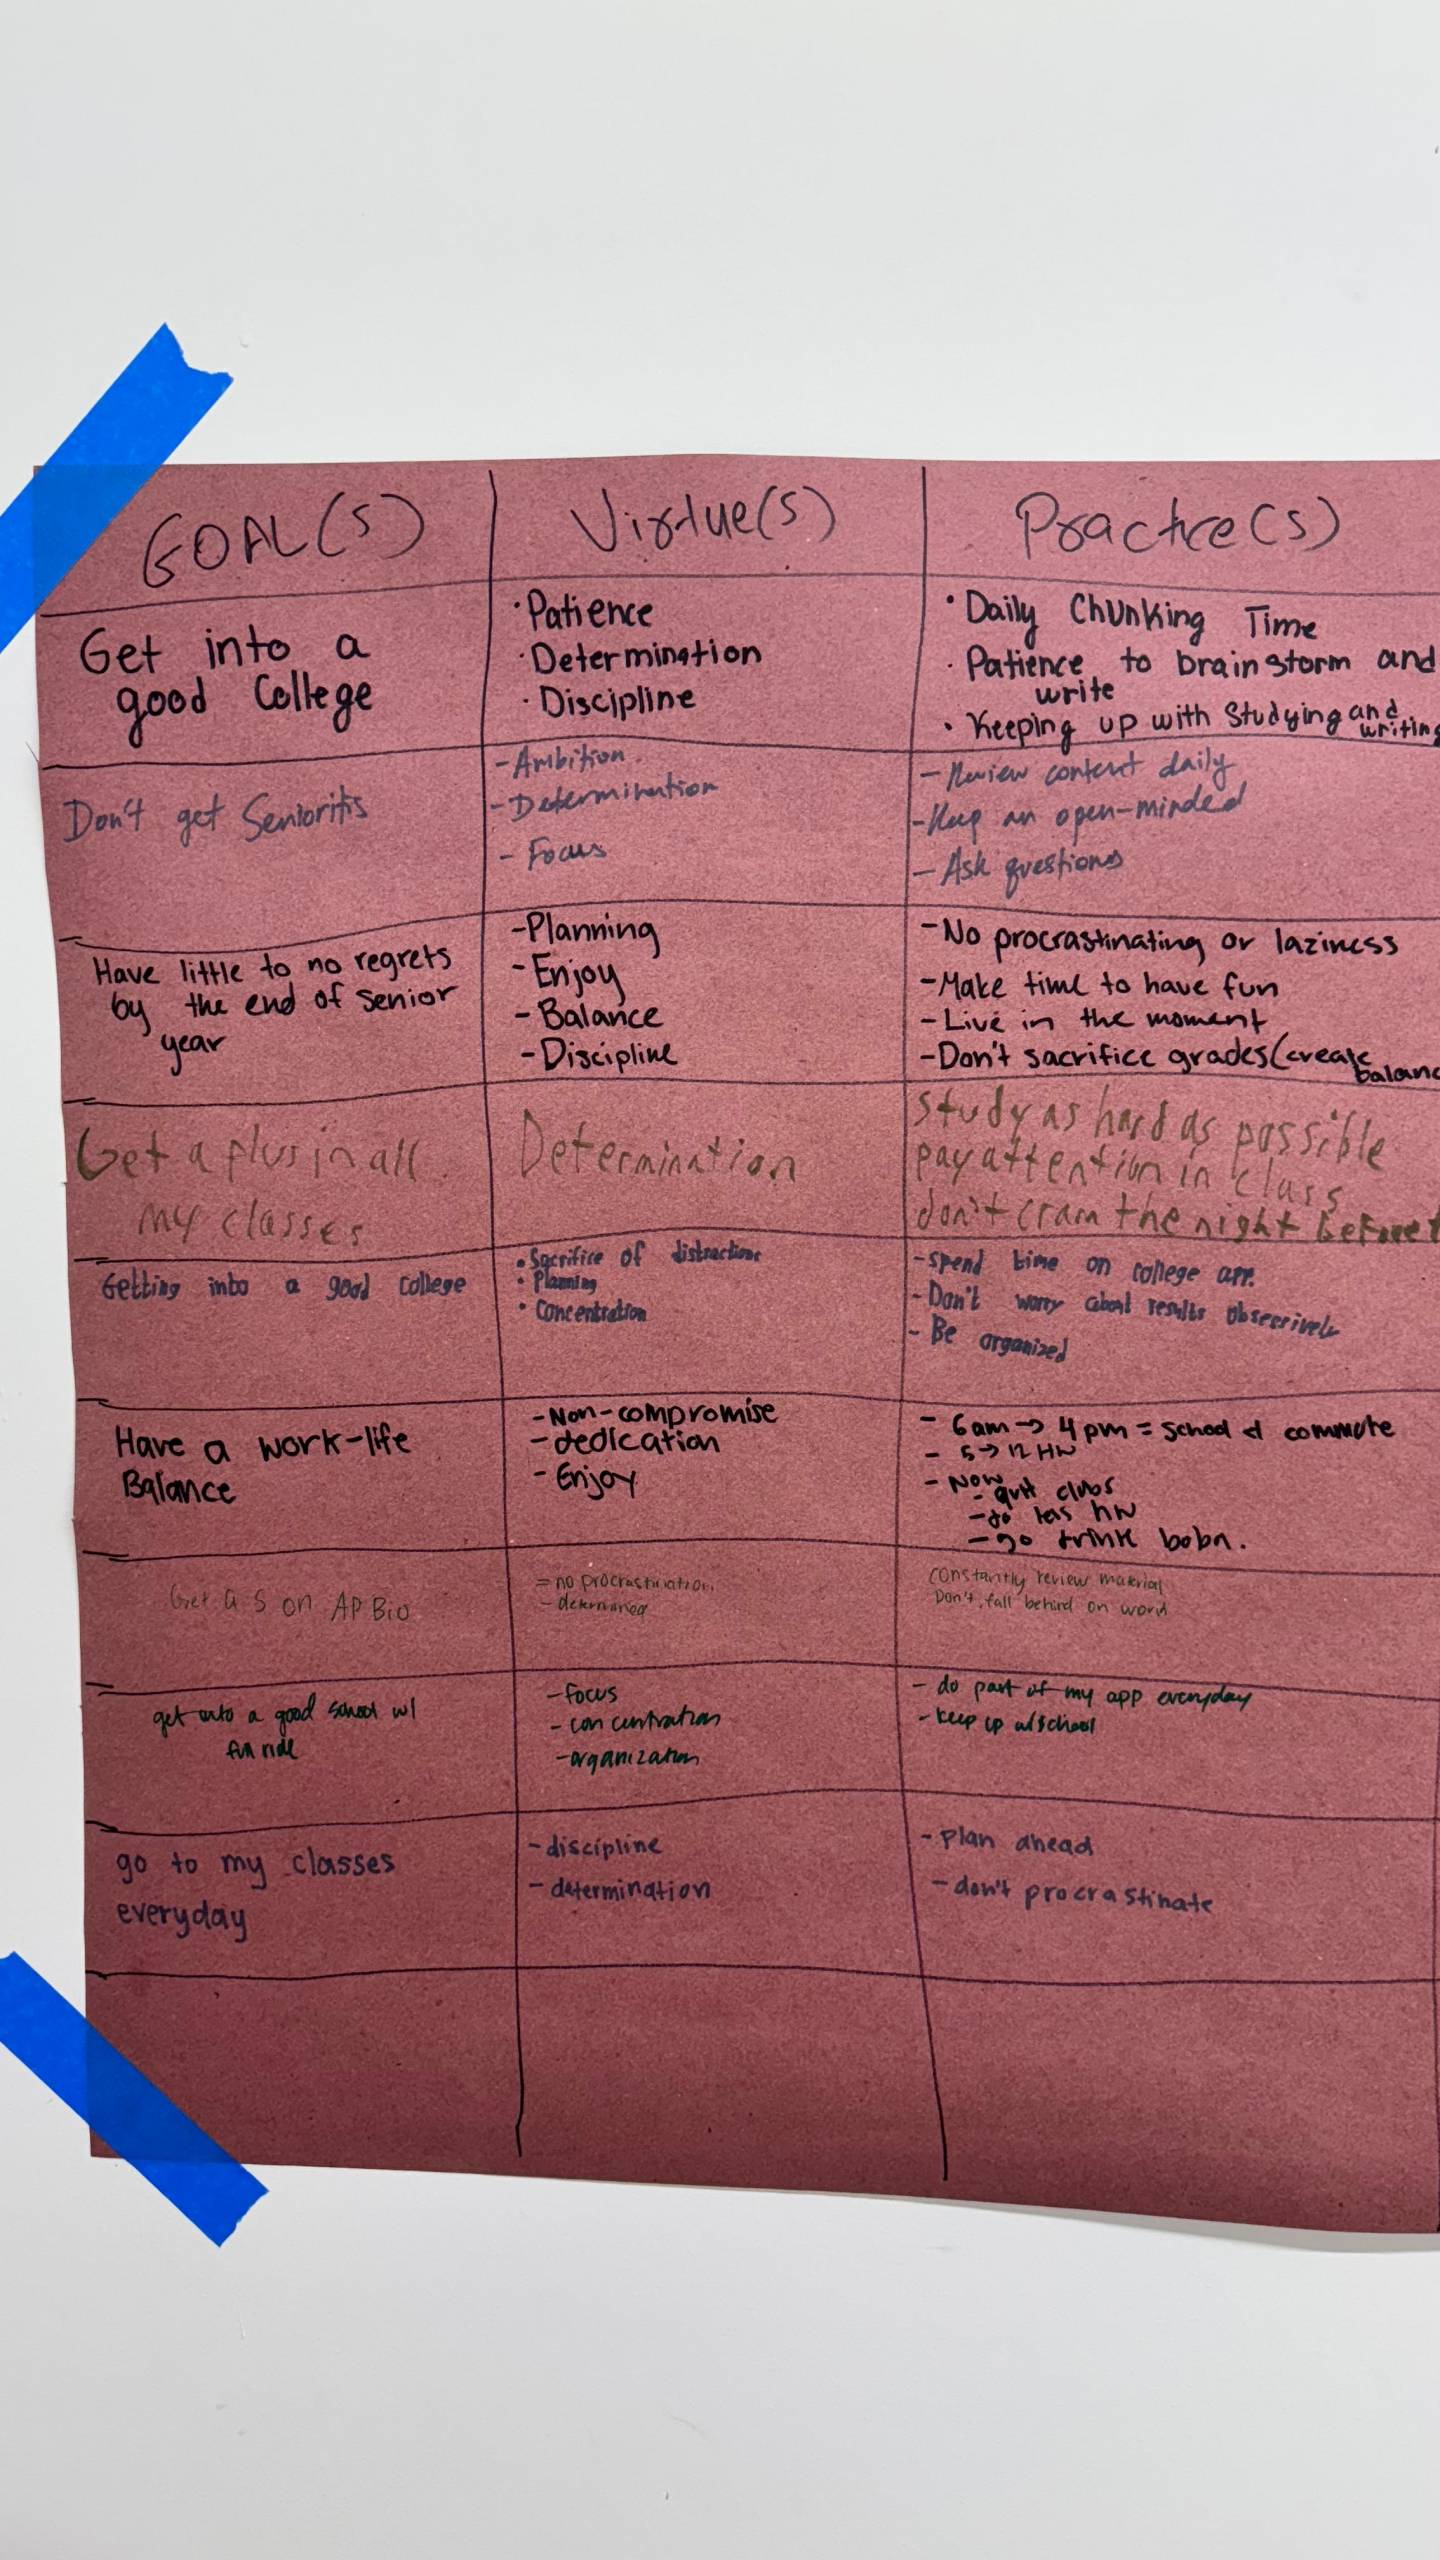 GOAL(S)
Virtue(s)
Practice(s)
Get into a
good College
• Patience
• Determination
• Discipline
• Daily Chunking Time
• Patience to brainstorm and
write
• Keeping up with studying and
writing
Don't get Senioritis
- Ambition
- Determination
- Focus
- Review content daily
- Keep an open-minded
- Ask questions
Have little to no regrets
by the end of senior
year
- Planning
- Enjoy
- Balance
- Discipline
- No procrastinating or laziness
- Make time to have fun
- Live in the moment
- Don't sacrifice grades (create
balanc
Get a plus in all
my classes
Determination
Study as hard as possible
pay attention in class
don't cram the night before t
Getting into a good college
• Sacrifice of distractions
• Planning
• Concentration
- spend time on college app.
- Don't worry about results obsessively
- Be organized
Have a work-life
Balance
- Non-compromise
- dedication
- Enjoy
- 6am → 4pm = school & commute
- 5 → 12 HW
- Now
- quit clubs
- do less hw
- go drink boba.
Get a 5 on AP Bio
= no procrastination
- determined
constantly review material
Don't fall behind on work
get into a good school w/
full ride
- focus
- concentration
- organization
- do part of my app everyday
- keep up w/ school
go to my classes
everyday
- discipline
- determination
- plan ahead
- don't procrastinate